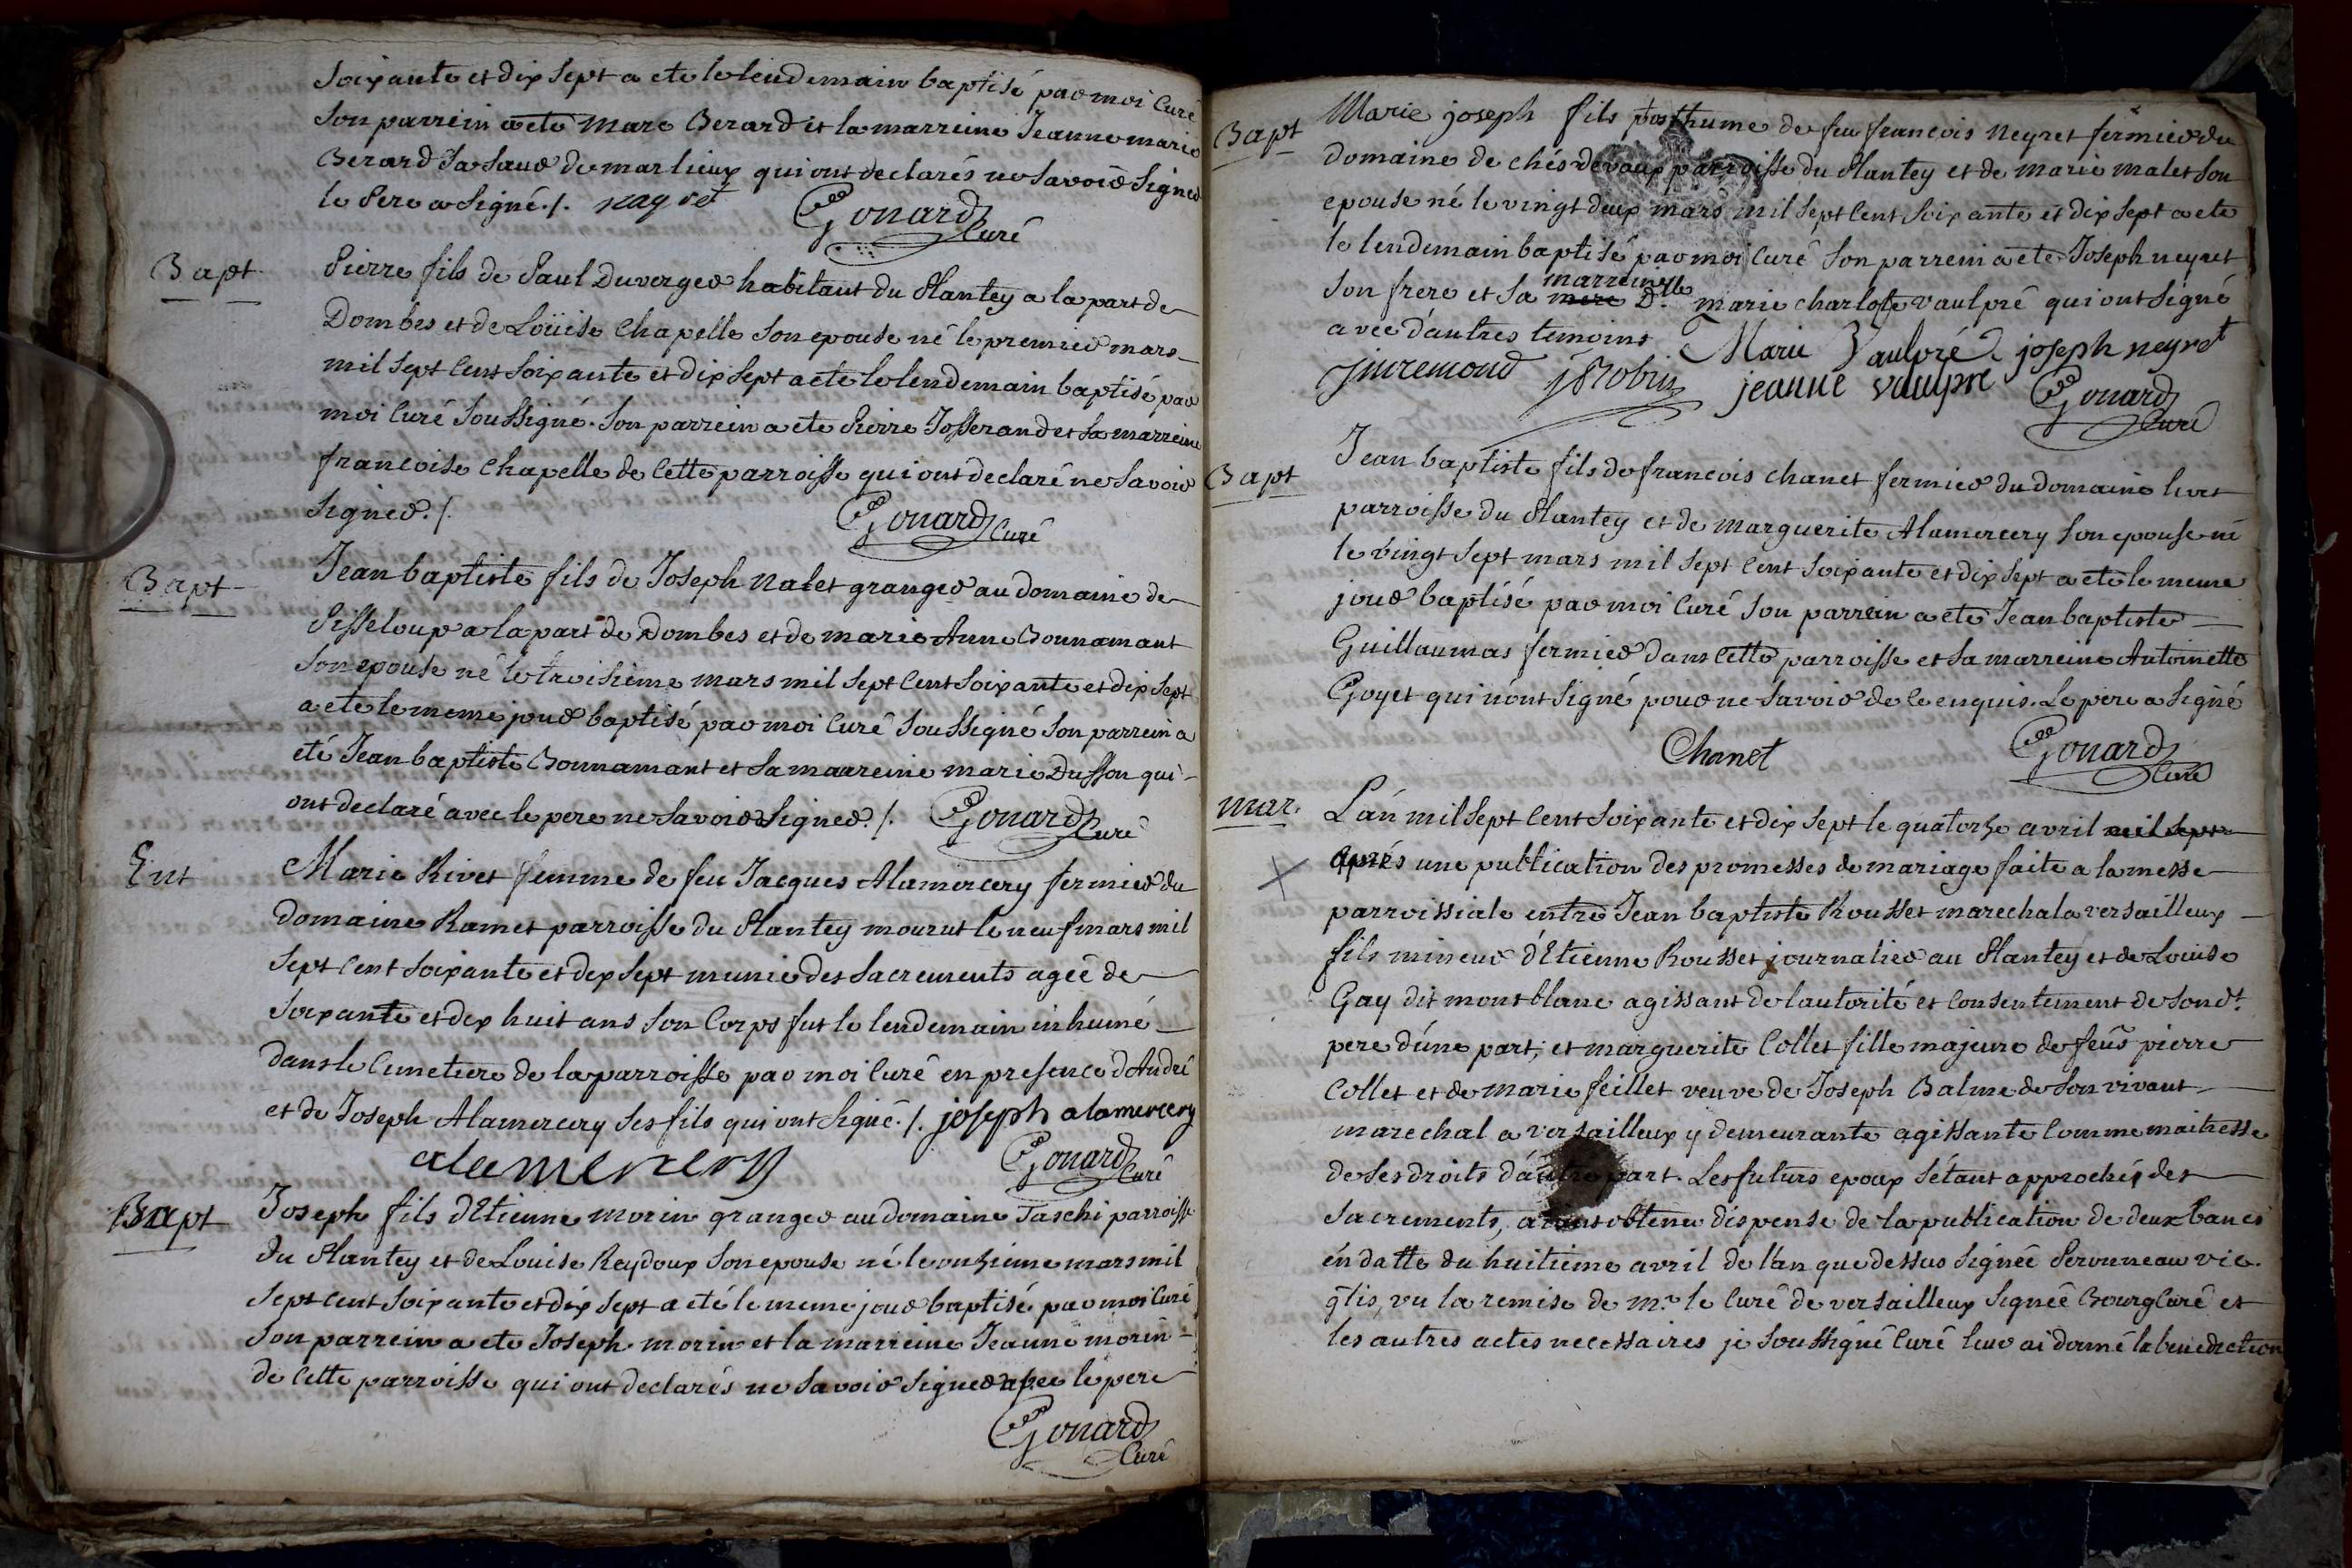 soixante et dix sept a eté le lendemain baptisé par moi Curé
son parrein a eté Marc Berard et la marreine Jeanne marie
Berard sa sœur de marlieux qui ont declarés ne savoir signer
le Pere a signé ./.
Gonard Curé
Bapt
Pierre fils de Paul Duverger habitant du Plantey a la part de
Dombes et de Loüise Chapelle son epouse né le premier mars
mil sept cent soixante et dix sept a eté le lendemain baptisé par
moi Curé soussigné. son parrein a eté Pierre Josserand et sa marreine
francoise Chapelle de cette parroisse qui ont declaré ne savoir
signer ./.
Gonard Curé
Bapt
Jean baptiste fils de Joseph Nalet granger au domaine de
Pisseloup a la part de Dombes et de marie Anne Bonnamant
son epouse né le troisieme mars mil sept cent soixante et dix sept
a eté le meme jour baptisé par moi Curé soussigné son parrein a
eté Jean baptiste Bonnamant et sa maareine marie Dusson qui
ont declaré avec le pere ne savoir signer ./. Gonard Curé
Ent
Marie Rivet femme de feu Jacques Alamercery fermier du
Domaine Ramet parroisse du Plantey mourut le neuf mars mil
sept cent soixante et dix sept munie des sacrements ageé de
soixante et dix huit ans son corps fut le lendemain inhumé
dans le Cimetiere de la parroisse par moi Curé en presence d'André
et de Joseph Alamercery ses fils qui ont signé ./. joseph alamercery
alamercery
Gonard Curé
Bapt
Joseph fils d'Etienne morin granger au domaine Taschi parroisse
du Plantey et de Louise Reydoux son epouse né le onzieme mars mil
sept cent soixante et dix sept a eté le meme jour baptisé par moi Curé
son parrein a eté Joseph morin et la marreine Jeanne morin
de cette parroisse qui ont declarés ne savoir signer avec le pere
Gonard Curé
Bapt
Marie joseph fils posthume de feu francois Neyret fermier du
domaine de chés devaux parroisse du Plantey et de marie malet son
epouse né le vingt deux mars mil sept cent soixante et dix sept a eté
le lendemain baptisé par moi Curé son parrein a eté Joseph neyret
son frere et sa mere marreine Dlle marie charlote vaulpré qui ont signé
avec d'autres temoins
Marie Vaulpré joseph neyret
jeanne vaulpre
Gonard Curé
Bapt
Jean baptiste fils de francois Chanet fermier du domaine livet
parroisse du Plantey et de marguerite Alamercery son epouse né
le vingt sept mars mil sept cent soixante et dix sept a eté le meme
jour baptisé par moi Curé son parrein a eté Jean baptiste
Guillaumas fermier dans cette parroisse et sa marreine Antoinette
Goyet qui n'ont signé pour ne savoir de ce enquis. Le pere a signé
Chanet
Gonard Curé
mar.
L'an mil sept cent soixante et dix sept le quatorze avril mil sept
aprés une publication des promesses de mariage faite a la messe
parroissiale entre Jean baptiste Rousset marechal a versailleux
fils mineur d'Etienne Rousset journalier au Plantey et de Louise
Gay dit mont blanc agissant de l'autorité et consentement de son dt.
pere d'une part; et marguerite Collet fille majeure de feûs pierre
Collet et de marie feillet veuve de Joseph Balme de son vivant
marechal a versailleux y demeurante agissante comme maitresse
de ses droits d'autre part. Les futurs epoux s'étant approchés des
sacrements, aiant obtenu dispense de la publication de deux bancs
en datte du huitieme avril de l'an que dessus signée Peronneau vic.
g̃lis, vu la remise de mr. le Curé de versailleux signeé Bourg Curé et
les autres actes necessaires je soussigné Curé leur ai donné la benediction